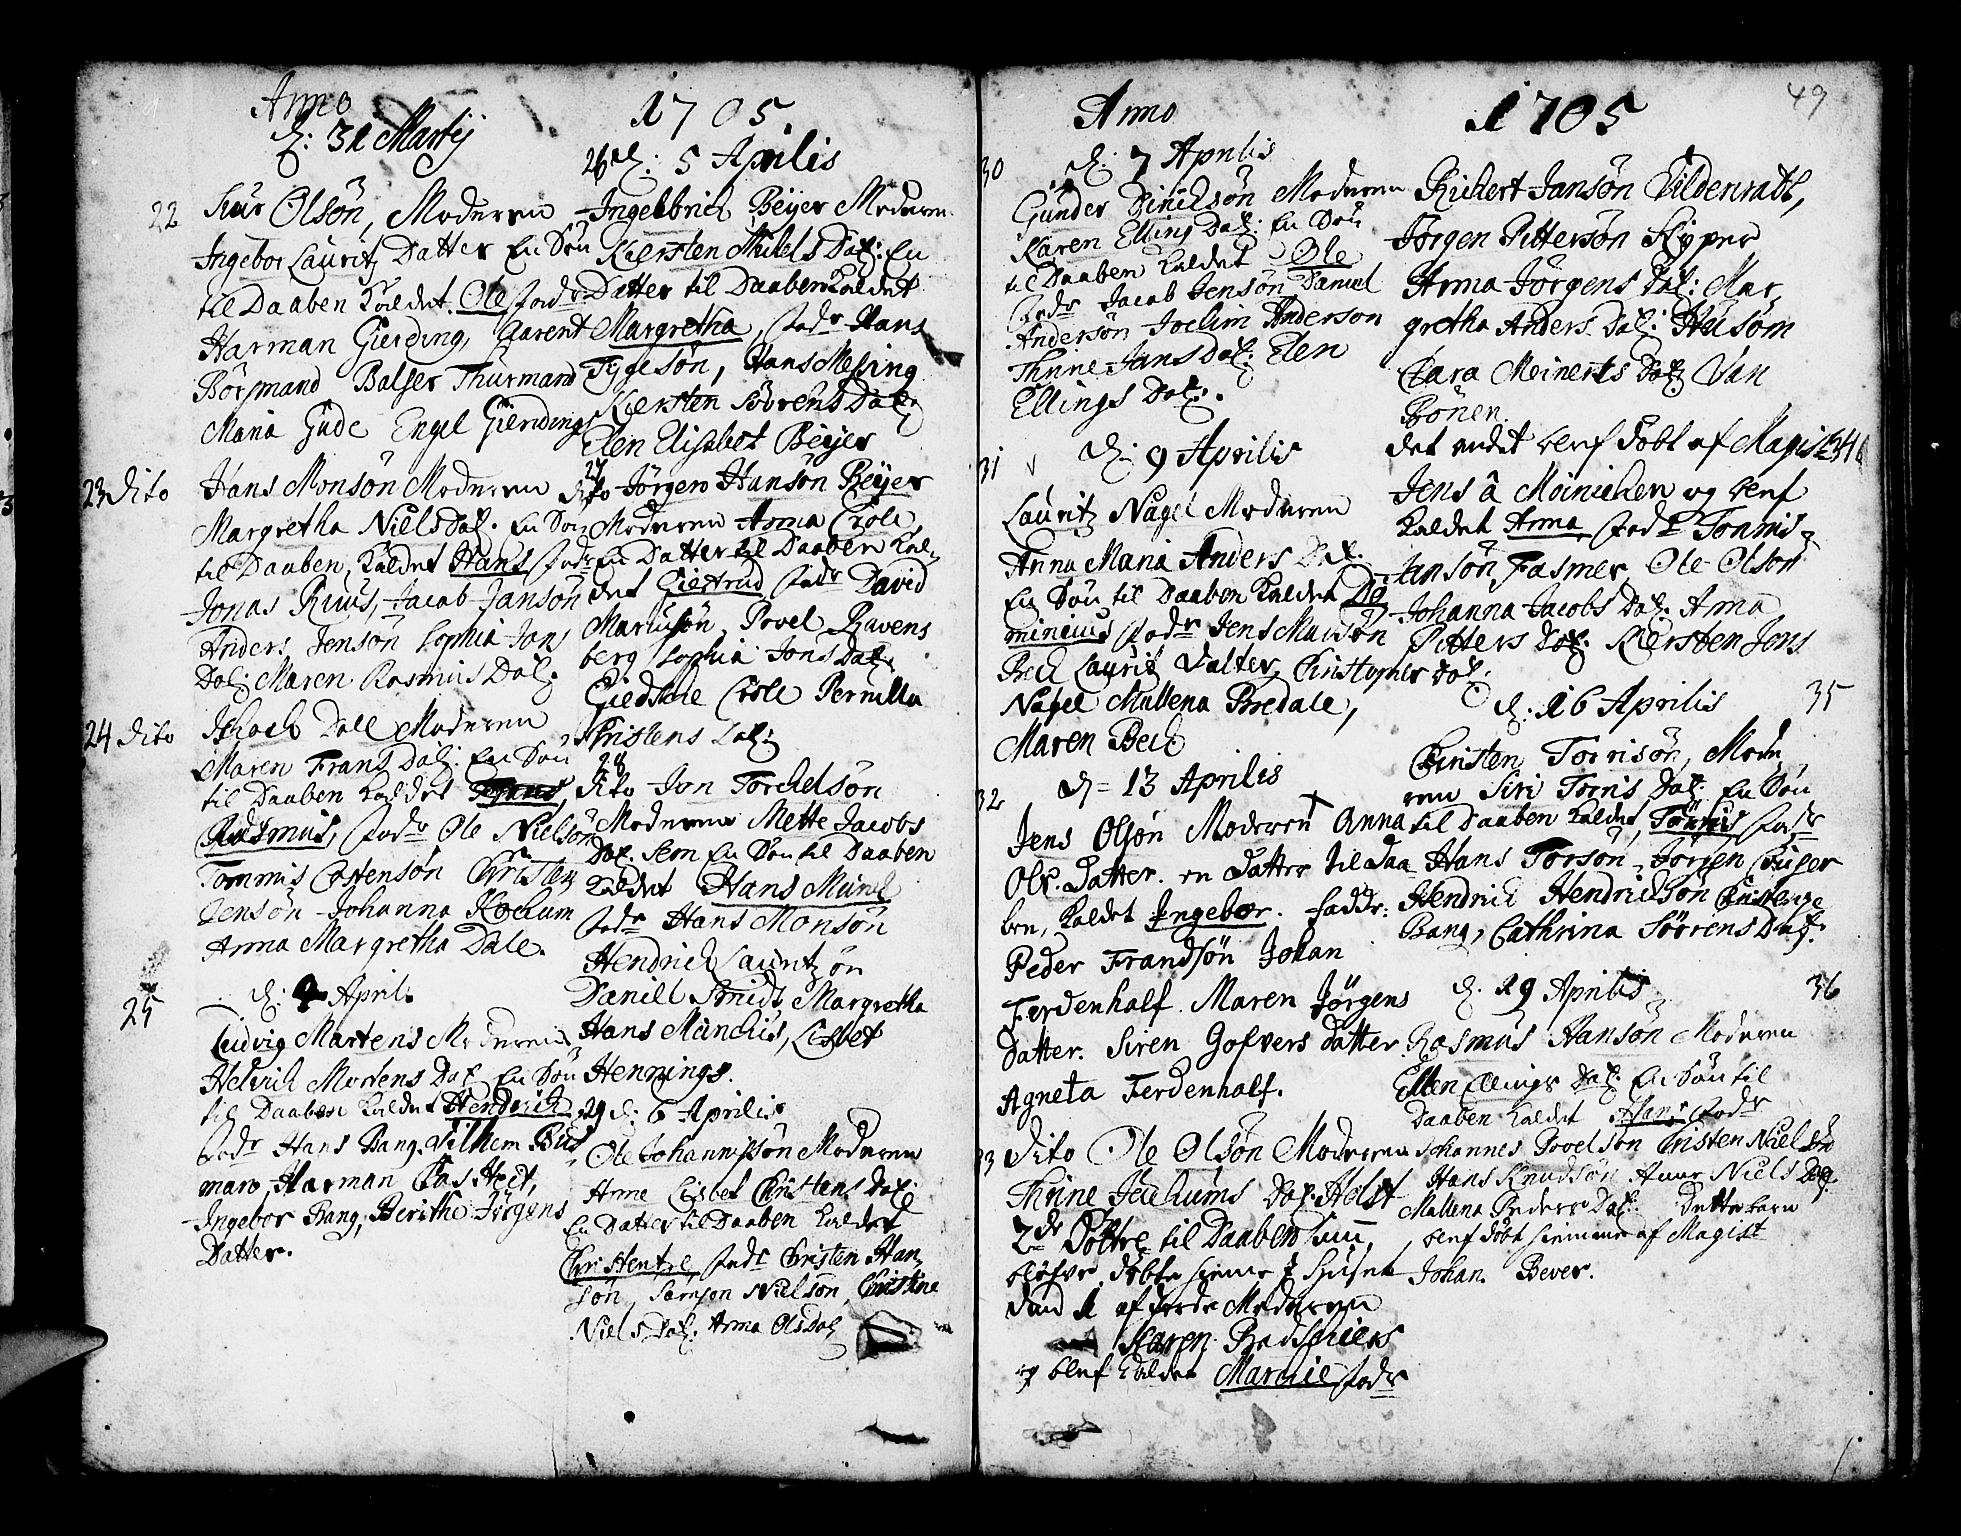 Anno 1705
d: 31 Martij
22 Siur Olsön, Moderen
Ingebor Lauritz Datter En Sön
til Daaben Kaldet Ole fadr
Harman Gierding, Garent
Börsmand Balzer Thurmand
Maria Gude Engel Gierdings
23 Dito Hans Monsön Moderen
Margretha Niels Dat: En Sön
til Daaben Kaldet Hans fadr
Jonas Ruus, Jacob Jansön
Anders Jensön Sophia Jans
Dat: Maren Rasmus Dat:
24 Dito Dall Moderen
Maren Frans Dat: En Sön
til Daaben Kaldet
Rasmus, fadr Ole Nielsön
Tommis Christen
Jensön Johanna Kochum
Anna Margretha Dale.
d: 2 April.
25 Ludvig Martens Moderen
Hinrich Mortens Dat En Sön
til Daaben Kaldet Hendrich
fadr Hans Bang Vilhem
Harman
Ingebor Bang, Berithe Jörgens
Datter.
26 d: 5 Aprilis
Ingelbrich Beyer Moderen
Kiersten Mikels Dat: En
Datter til Daaben Kaldet
Margretha, fadr Hans
Tygesön, Hans Messing
Kiersten Sörens Dat:
Elen Elisabet Beyer
27
dito Jörgen Hansön Beyer
Moderen Anna Crole,
En Datter til Daaben Kal,
det Giertrud fadr David
Povel Ravens
berg Sophia Jons Dat:
Giedske Crole Pernilla
Christens Dat:
28
dito Jon Torchelsön
Moderen Mette Jacobs
Dat. En Sön til Daaben
Kaldet Hans Munch
fadr Hans Monsön
Hendrich Lauritzön
Daniell Smidt Margretha
Hans Munchis, Lisbet
Hennings.
29 d: 6 Aprilis
Ole Johannissön Moderen
Anne Lisbet Christens Dat:
En Datter til Daaben Kaldet
Christentze, fadr Christen Han,
sön, Samson Nielsön, Christine
Niels Dat: Anna Ols Dat
Anno 1705 49
30 d: 7 Aprilis
Gunder Moderen
Karen Ellings Dat: En Sön
til Daaben Kaldet Ole
fadr Jacob Jensön Daniel
Andersön Jochim Anderson
Thrine Jans Dat: Elen
Ellings Dat:.
31 d: 9 Aprilis
Lauritz Nagel Moderen
Anna Maria Anders Dat:
En Sön til Daaben Kaldet Do
minicus fadr Jens
Bech Lauritz Valter, Christopher Dat:
Nagel Mallena Bredale,
Maren Bech
32 d= 13 Aprilis
Jens Olsön Moderen Anna
Ols. Datter. en Datter til Daa
ben, Kaldet Ingebor. Faddr:
Peder Frandsön Johan
Ferdenhalf. Maren Jörgens
Datter. Siren Gofvers Datter.
Agneta Ferdenhalf.
33 Dito Ole Olsön Moderen
Thrine Jochums Dat.
2de Döttre til Daaben
blefve döbte hieme i Huset
den 1 af Jorde Moderen
Karen
og blef Kaldet Marichie fadr
Richert Jansön Vildenrath,
Jörgen Pittersön Kyper
Anna Jörgens Dat: Mar,
gretha Anders Dat: Husom
Clara Meinerts Dat Van
Bönen.
det andet blef döbt af Magist 34
Jens á Möinichen og blef
Kaldet Anna, fadr Tonnis
Jansön Fasmer, Ole Olson
Johanna Jacobs Dat. Anna
Pitters Dat: Kiersten Jens
d: 16 Aprilis 35
Christen Torrisön, Mode,
ren Siri Tomis Dat: En Sön
til Daaben Kaldet Tönnis fadr
Hans Torsön, Jörgen Crüger
Hendrich Hendricksön
Bang, Cathrina Sörens Dat:
d. 29 Aprilis 36
Rasmus Hansön Moderen
Ellen Ellings Dat: En Sön til
Daaben Kaldet Hans fadr
Johannes Povelsön Cristen Nielsön
Hans Knudsön Anne Niels Dat:
Mallena Peders Dat: Dette barn
blef döbt hiemme af Magist
Johan Bever.